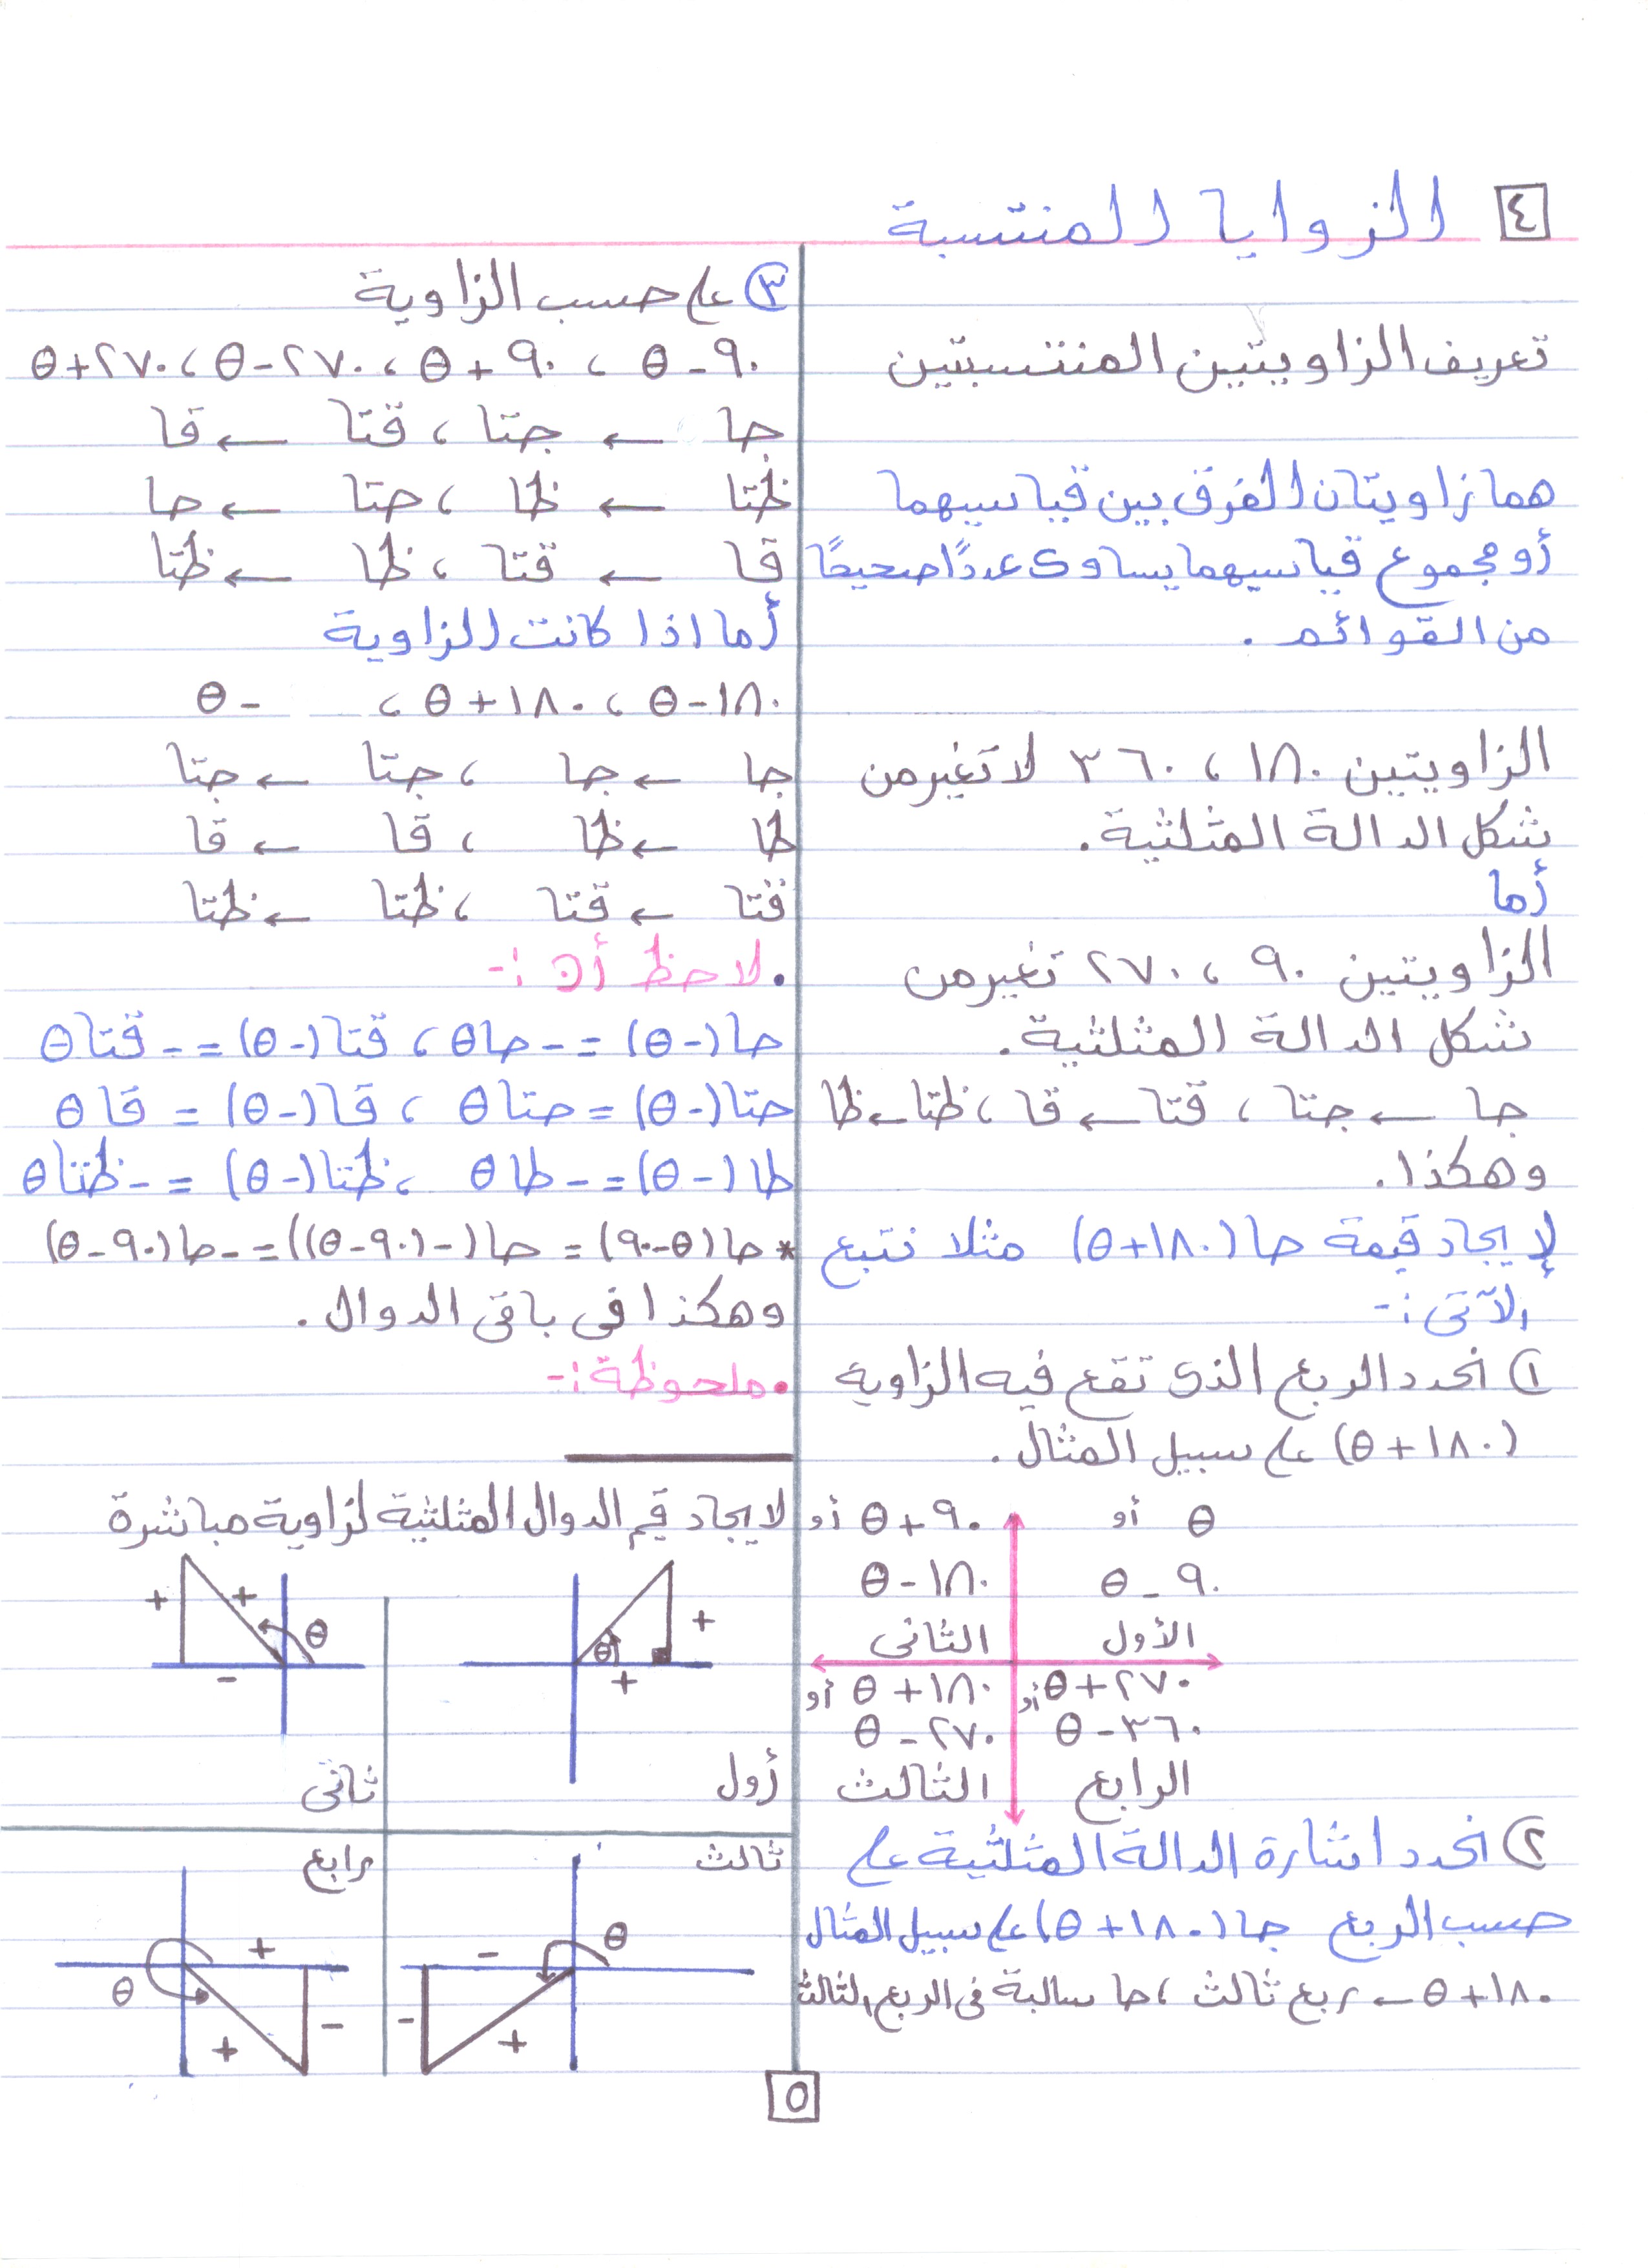 ٤ الزوايا المنتسبة
تعريف الزاويتين المنتسبتين
هما زاويتان الفرق بين قياسيهما
أو مجموع قياسيهما يساوى عددًا صحيحًا
من القوائم .
الزاويتين ١٨٠ ، ٣٦٠ لا تغير من
شكل الدالة المثلثية .
أما
الزاويتين ٩٠ ، ٢٧٠ تغير من
شكل الدالة المثلثية .
جا ← جتا ، قتا ← قا ، ظتا ← ظا
وهكذا .
لإيجاد قيمة جا (١٨٠+θ) مثلا نتبع
الآتى :-
١ نحدد الربع الذى تقع فيه الزاوية
(١٨٠+θ) على سبيل المثال .
θ أو
٩٠-θ
الأول
٩٠+θ أو
١٨٠-θ
الثانى
١٨٠+θ أو
٢٧٠-θ
الثالث
٢٧٠+θ أو
٣٦٠-θ
الرابع
٢ نحدد اشارة الدالة المثلثية على
حسب الربع جا (١٨٠+θ) على سبيل المثال
١٨٠+θ ← ربع ثالث ، جا سالبة فى الربع الثالث
٣ على حسب الزاوية
٩٠-θ ، ٩٠+θ ، ٢٧٠-θ ، ٢٧٠+θ
جا ← جتا ، قتا ← قا
ظتا ← ظا ، جتا ← جا
قا ← قتا ، ظا ← ظتا
أما اذا كانت الزاوية
١٨٠-θ ، ١٨٠+θ ، -θ
جا ← جا ، جتا ← جتا
ظا ← ظا ، قا ← قا
قتا ← قتا ، ظتا ← ظتا
• لاحظ أن :-
جا (-θ) = - جا θ ، قتا (-θ) = - قتا θ
جتا (-θ) = جتا θ ، قا (-θ) = قا θ
ظا (-θ) = - ظا θ ، ظتا (-θ) = - ظتا θ
* جا (θ-٩٠) = جا (-(٩٠-θ)) = - جا (٩٠-θ)
وهكذا فى باقى الدوال .
• ملحوظة :-
لايجاد قيم الدوال المثلثية لزاوية مباشرة
θ + +
أول
θ + + -
ثانى
ثالث
θ - - +
رابع
θ + - +
٥